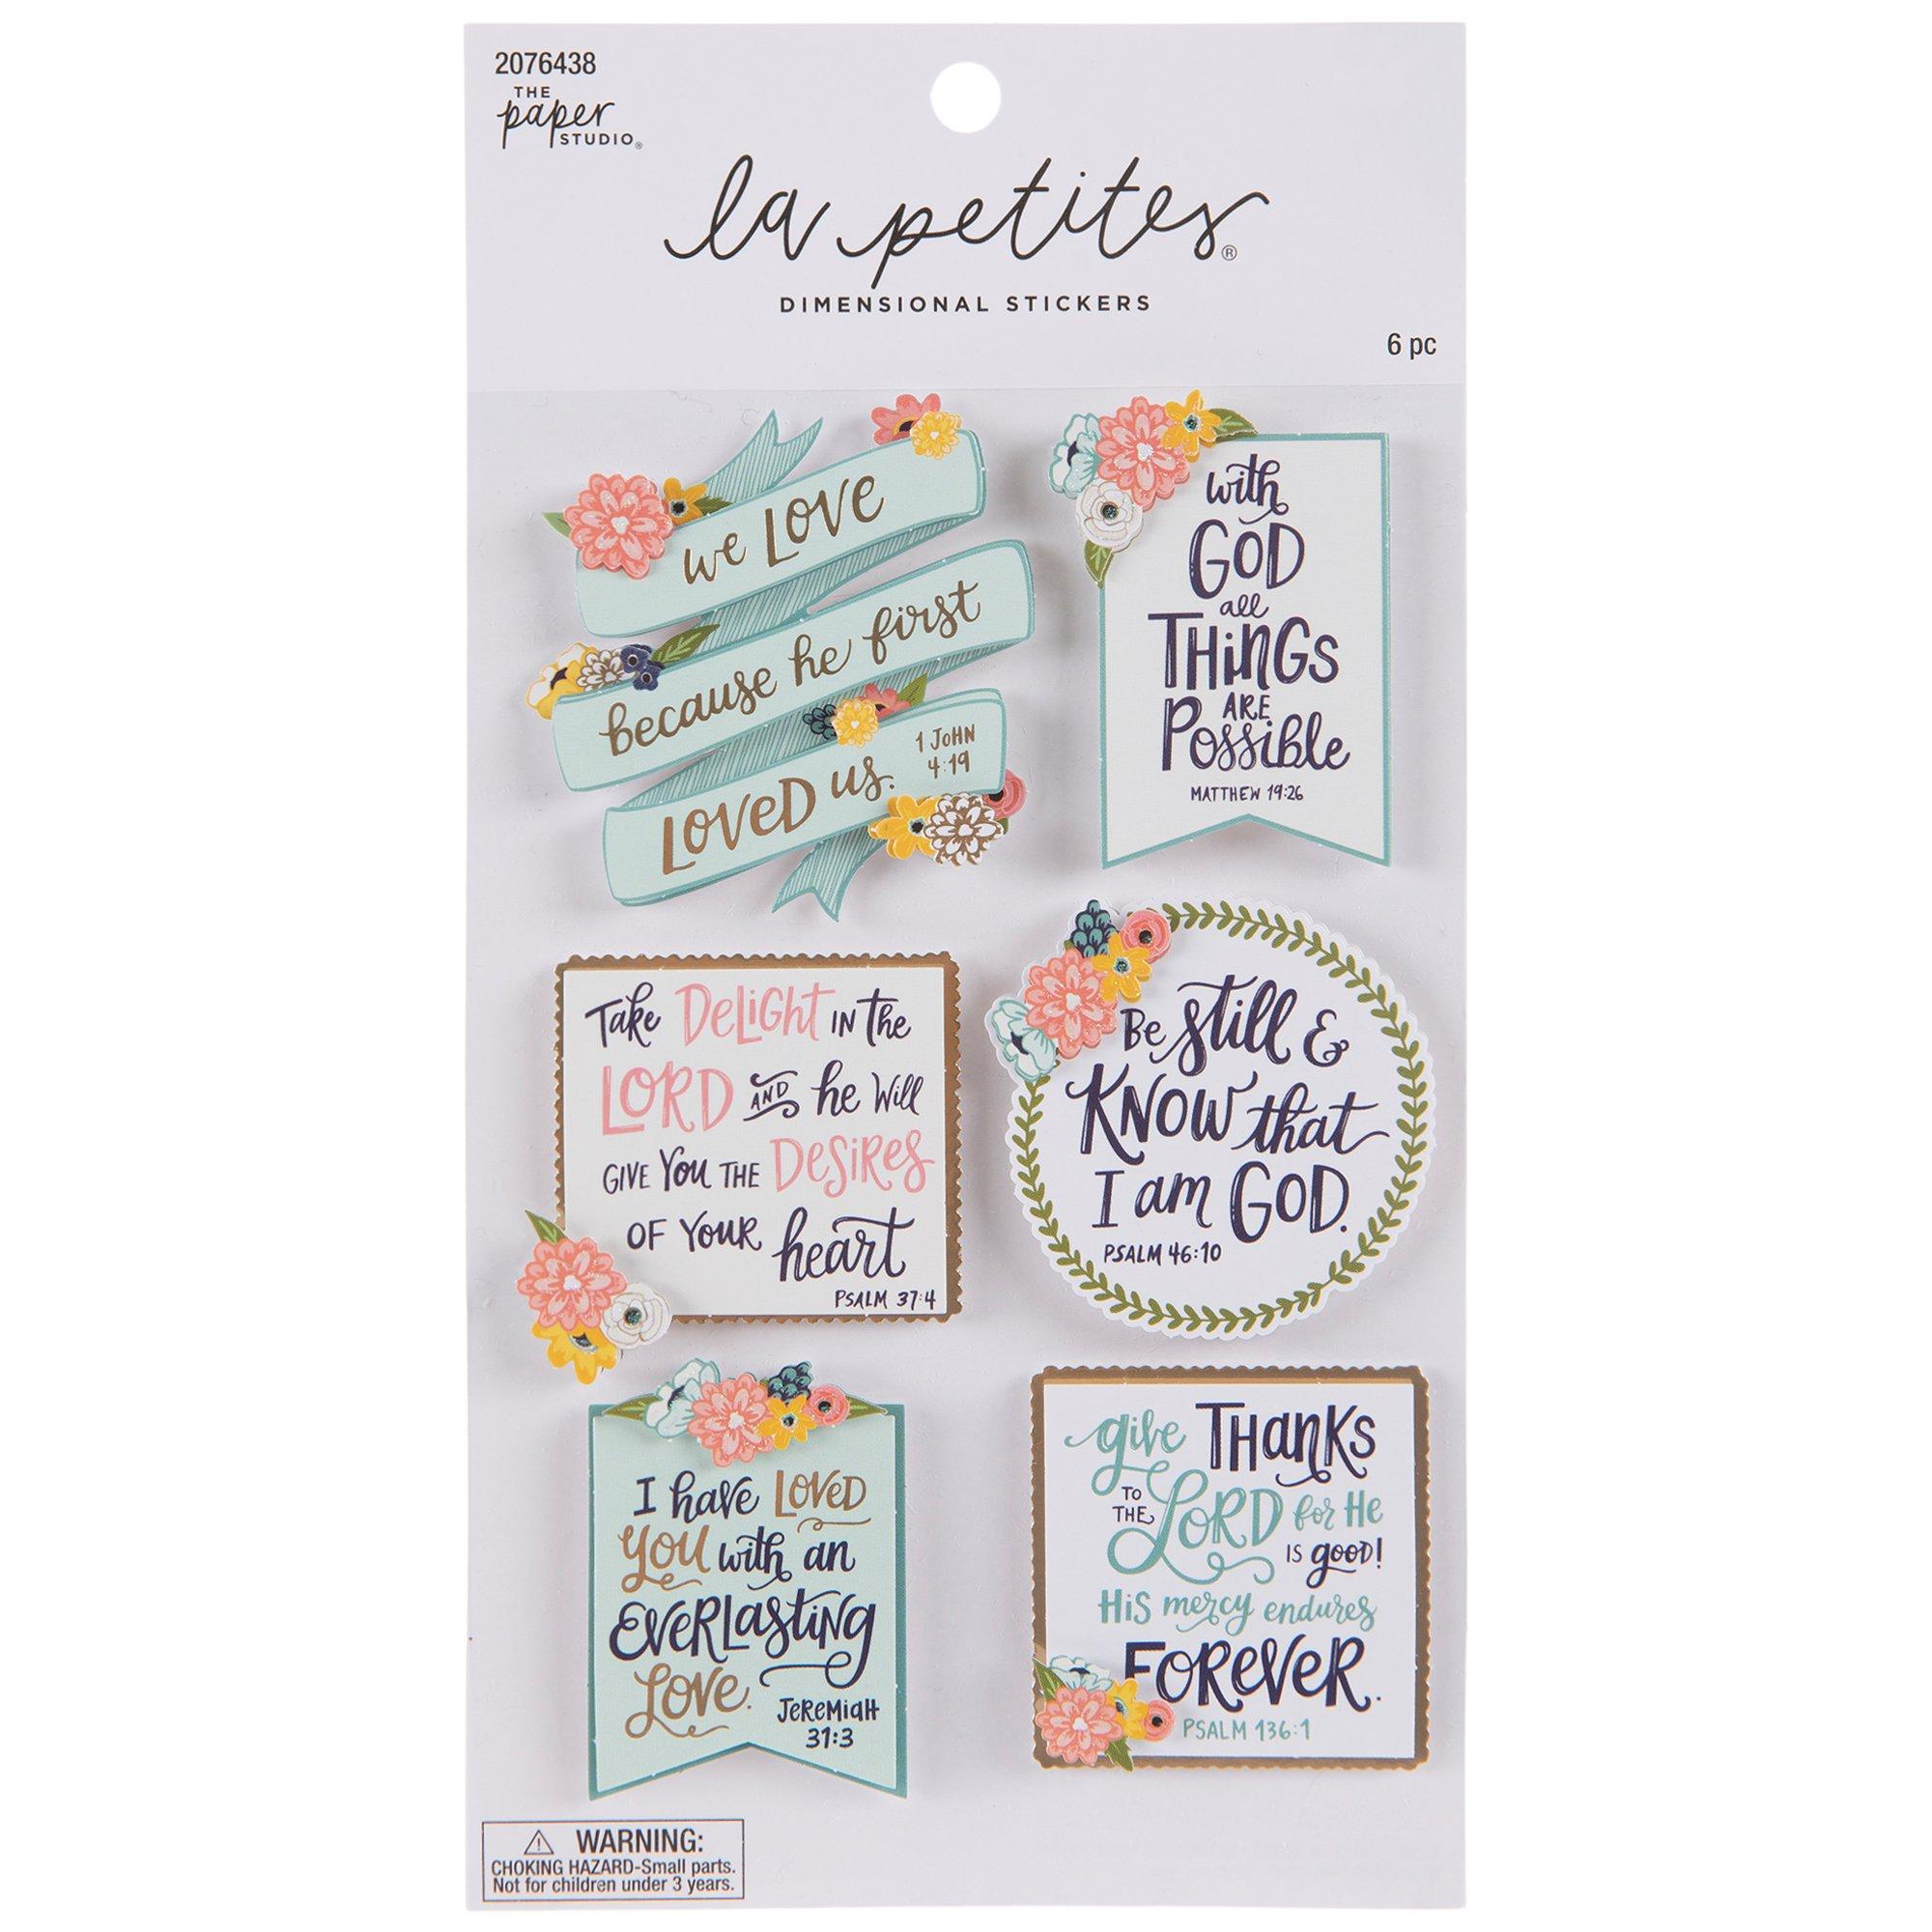 2076438
THE
paper
STUDIO®
la petites®
DIMENSIONAL STICKERS
6 pc
we LOVE
because he first
LOVED us.
1 JOHN
4:19
with
GOD
all
THiNGS
ARE
Possible
MATTHEW 19:26
Take DeLiGht IN the
LORD AND he Will
GIVE You THE DeSiReS
OF YouR heart
PSALM 37:4
Be still &
KNOW that
I am GOD.
PSALM 46:10
I have LOVED
you with an
EVeRLasting
Love.
JeReMiaH
31:3
give THanKS
TO
THE LORD for He
IS gooD!
HiS mercy endures
FOReVeR.
PSALM 136:1
⚠ WARNING:
CHOKING HAZARD-Small parts.
Not for children under 3 years.